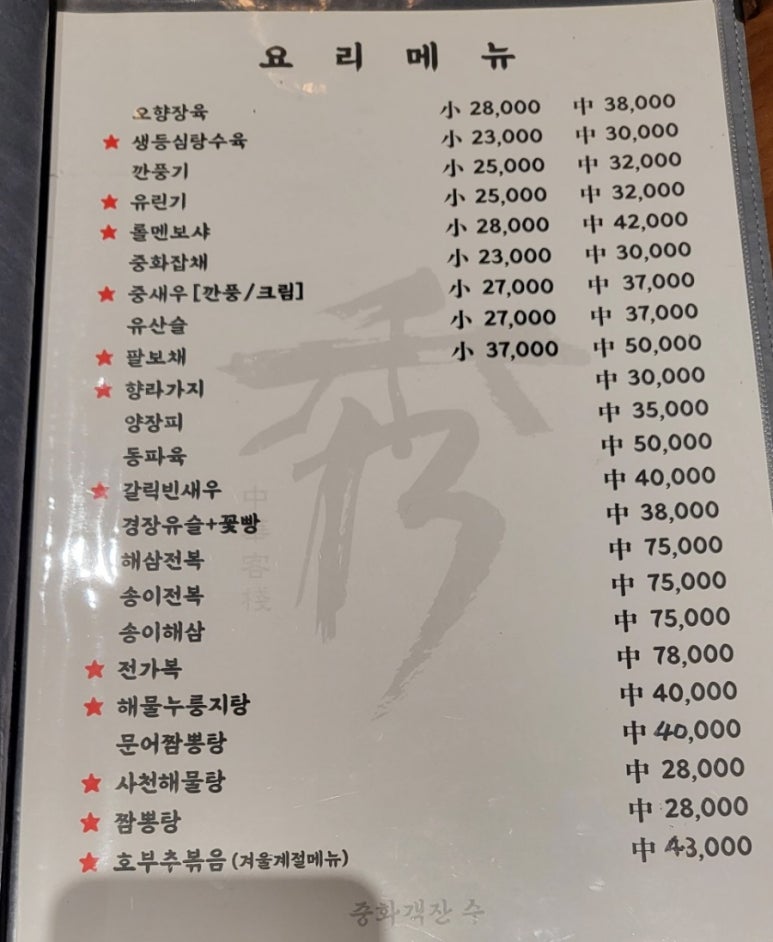 요리메뉴
오향장육 小 28,000 中 38,000
★ 생등심탕수육 小 23,000 中 30,000
깐풍기 小 25,000 中 32,000
★ 유린기 小 25,000 中 32,000
★ 롤멘보샤 小 28,000 中 42,000
중화잡채 小 23,000 中 30,000
★ 중새우[깐풍/크림] 小 27,000 中 37,000
유산슬 小 27,000 中 37,000
★ 팔보채 小 37,000 中 50,000
★ 향라가지 中 30,000
양장피 中 35,000
동파육 中 50,000
★ 갈릭빈새우 中 40,000
경장유슬+꽃빵 中 38,000
해삼전복 中 75,000
송이전복 中 75,000
송이해삼 中 75,000
★ 전가복 中 78,000
★ 해물누룽지탕 中 40,000
문어짬뽕탕 中 40,000
★ 사천해물탕 中 28,000
★ 짬뽕탕 中 28,000
★ 호부추볶음 (겨울계절메뉴) 中 43,000
秀
中華客棧
중화객잔 수